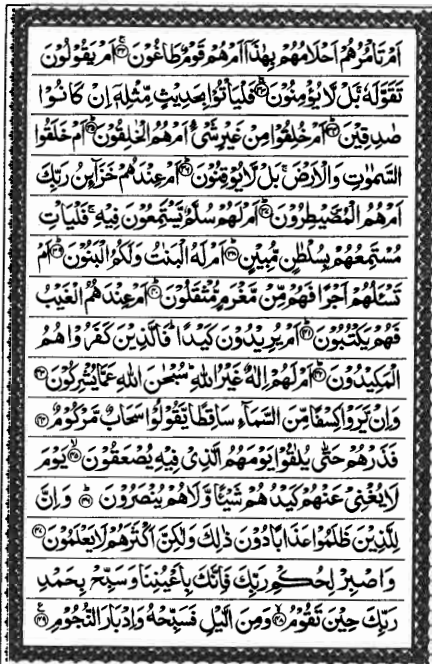 اَمْ تَاْمُرُهُمْ اَحْلَامُهُمْ بِهٰذَاۤ اَمْ هُمْ قَوْمٌ طَاغُوْنَ ۚ﴿۳۲﴾ اَمْ يَقُوْلُوْنَ
تَقَوَّلَهٗ ۚ بَلْ لَّا يُؤْمِنُوْنَ ۚ﴿۳۳﴾ فَلْيَاْتُوْا بِحَدِيْثٍ مِّثْلِهٖۤ اِنْ كَانُوْا
صٰدِقِيْنَ ؕ﴿۳۴﴾ اَمْ خُلِقُوْا مِنْ غَيْرِ شَيْءٍ اَمْ هُمُ الْخٰلِقُوْنَ ؕ﴿۳۵﴾ اَمْ خَلَقُوا
السَّمٰوٰتِ وَالْاَرْضَ ۚ بَلْ لَّا يُوْقِنُوْنَ ؕ﴿۳۶﴾ اَمْ عِنْدَهُمْ خَزَآىِٕنُ رَبِّكَ
اَمْ هُمُ الْمُصَۜيْطِرُوْنَ ؕ﴿۳۷﴾ اَمْ لَهُمْ سُلَّمٌ يَّسْتَمِعُوْنَ فِيْهِ ۚ فَلْيَاْتِ
مُسْتَمِعُهُمْ بِسُلْطٰنٍ مُّبِيْنٍ ؕ﴿۳۸﴾ اَمْ لَهُ الْبَنٰتُ وَلَكُمُ الْبَنُوْنَ ؕ﴿۳۹﴾ اَمْ
تَسْـَٔلُهُمْ اَجْرًا فَهُمْ مِّنْ مَّغْرَمٍ مُّثْقَلُوْنَ ؕ﴿۴۰﴾ اَمْ عِنْدَهُمُ الْغَيْبُ
فَهُمْ يَكْتُبُوْنَ ؕ﴿۴۱﴾ اَمْ يُرِيْدُوْنَ كَيْدًا ؕ فَالَّذِيْنَ كَفَرُوْا هُمُ
الْمَكِيْدُوْنَ ؕ﴿۴۲﴾ اَمْ لَهُمْ اِلٰهٌ غَيْرُ اللّٰهِ ؕ سُبْحٰنَ اللّٰهِ عَمَّا يُشْرِكُوْنَ ﴿۴۳﴾
وَاِنْ يَّرَوْا كِسْفًا مِّنَ السَّمَآءِ سَاقِطًا يَّقُوْلُوْا سَحَابٌ مَّرْكُوْمٌ ﴿۴۴﴾
فَذَرْهُمْ حَتّٰى يُلٰقُوْا يَوْمَهُمُ الَّذِيْ فِيْهِ يُصْعَقُوْنَ ۙ﴿۴۵﴾ يَوْمَ
لَا يُغْنِيْ عَنْهُمْ كَيْدُهُمْ شَيْـًٔا وَّلَا هُمْ يُنْصَرُوْنَ ؕ﴿۴۶﴾ وَاِنَّ
لِلَّذِيْنَ ظَلَمُوْا عَذَابًا دُوْنَ ذٰلِكَ وَلٰكِنَّ اَكْثَرَهُمْ لَا يَعْلَمُوْنَ ﴿۴۷﴾
وَاصْبِرْ لِحُكْمِ رَبِّكَ فَاِنَّكَ بِاَعْيُنِنَا وَسَبِّحْ بِحَمْدِ
رَبِّكَ حِيْنَ تَقُوْمُ ۙ﴿۴۸﴾ وَمِنَ الَّيْلِ فَسَبِّحْهُ وَاِدْبَارَ النُّجُوْمِ ﴿۴۹﴾ ع